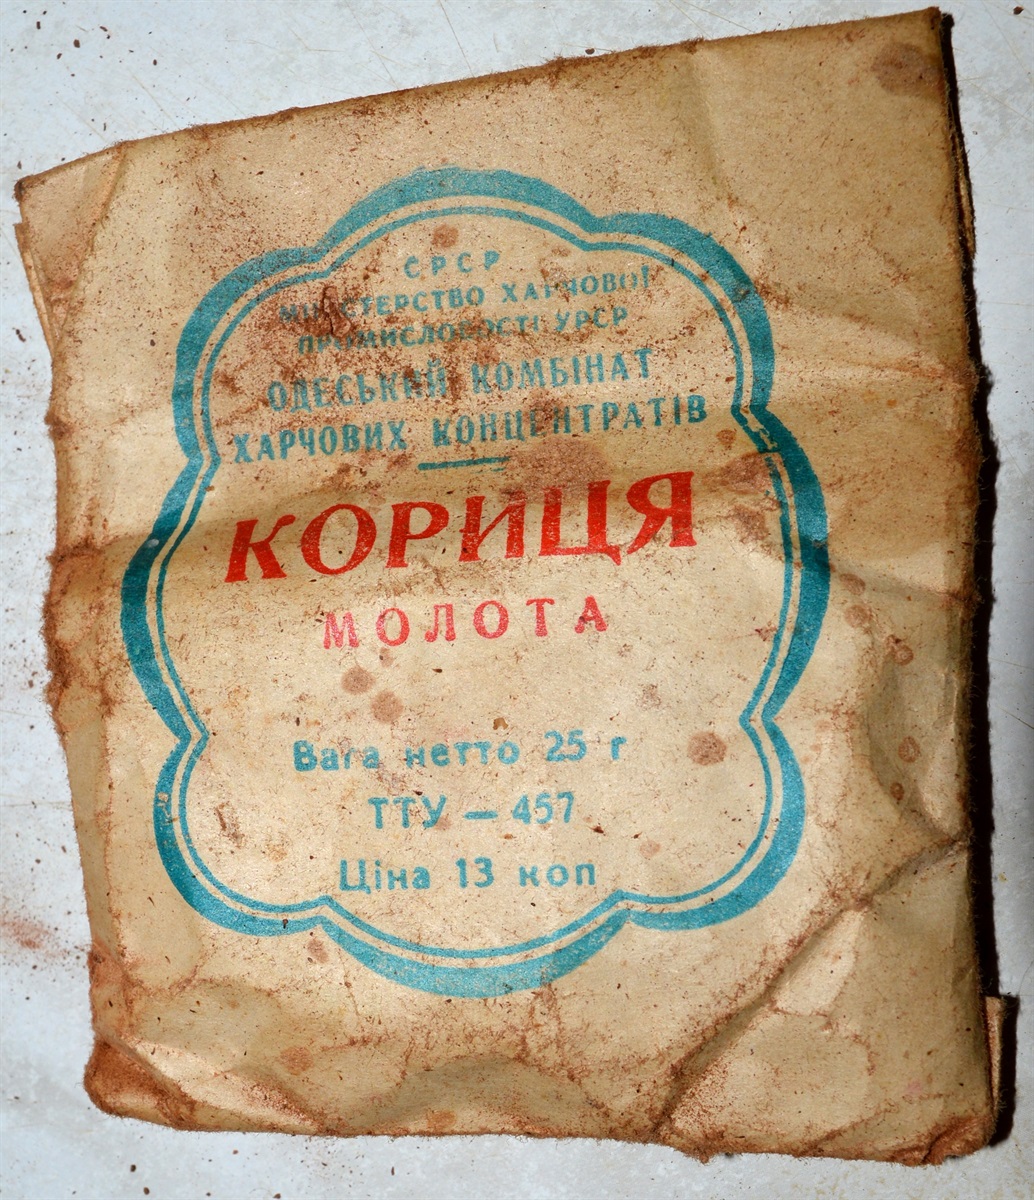 СРСР
МІНІСТЕРСТВО ХАРЧОВОЇ
ПРОМИСЛОВОСТІ УРСР
ОДЕСЬКИЙ КОМБІНАТ
ХАРЧОВИХ КОНЦЕНТРАТІВ
КОРИЦЯ
МОЛОТА
Вага нетто 25 г
ТТУ — 457
Ціна 13 коп